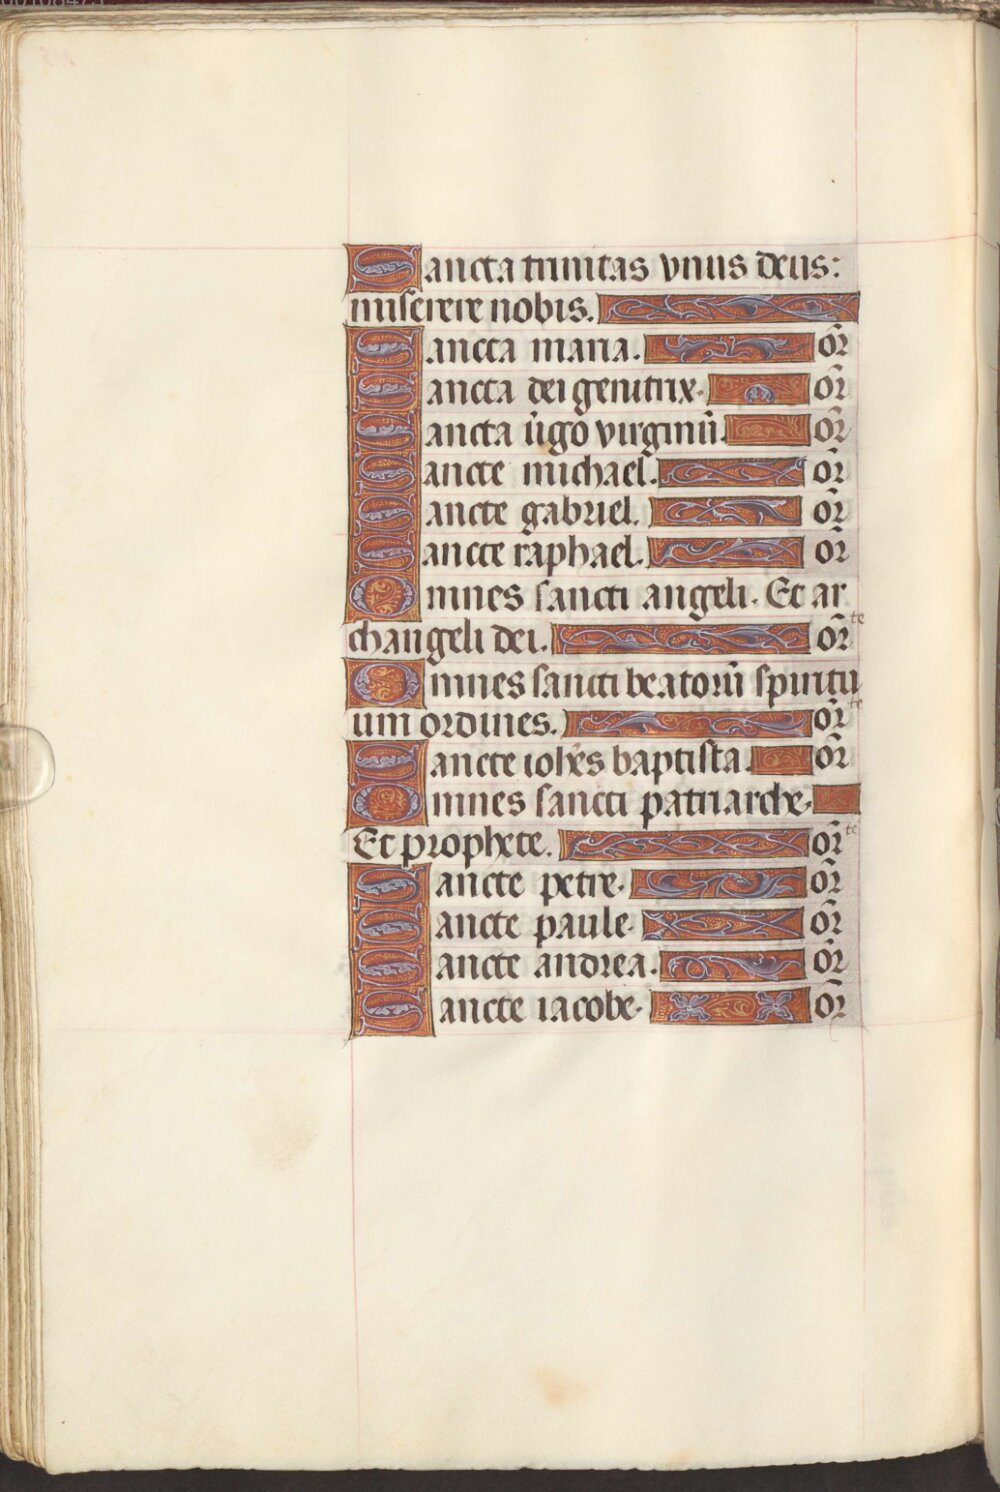 Sancta trinitas vnus deus:
miserere nobis.
Sancta maria. or̃
Sancta dei genitrix. or̃
Sancta ũgo virginũ. or̃
Sancte michael. or̃
Sancte gabriel. or̃
Sancte raphael. or̃
Omnes sancti angeli. Et ar
changeli dei. or̃te
Omnes sancti beatorũ spiritu
um ordines. or̃te
Sancte ioħes baptista. or̃
Omnes sancti patriarche.
Et prophete. or̃te
Sancte petre. or̃
Sancte paule. or̃
Sancte andrea. or̃
Sancte iacobe. or̃